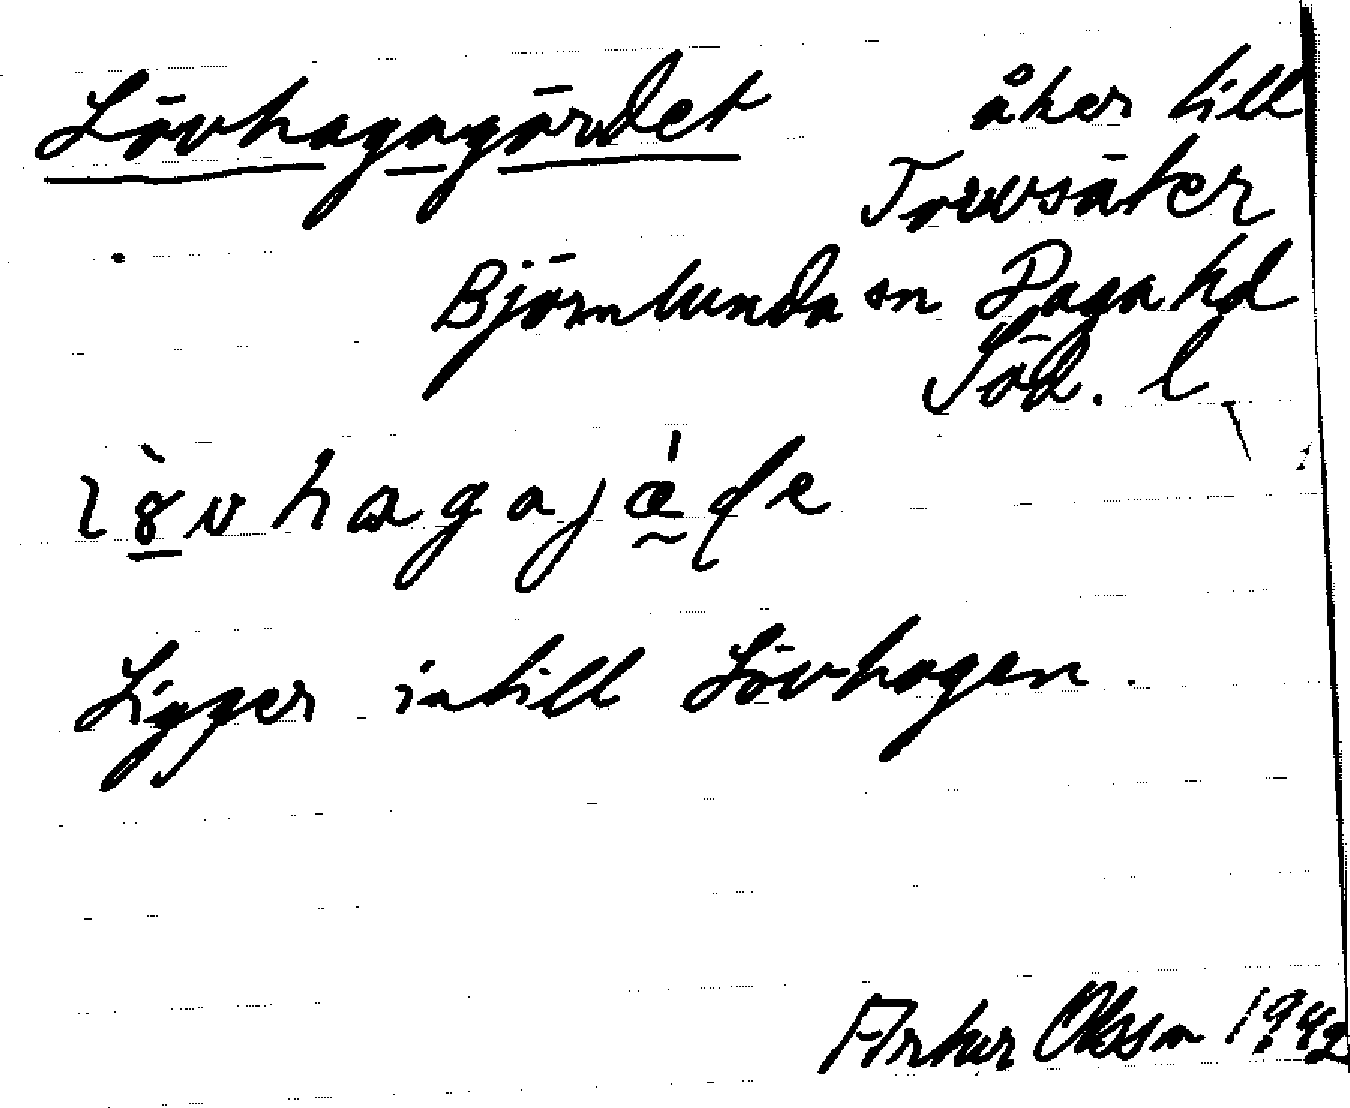 Lövhagagärdet åker till
Torvsäter
Björnlunda sn Daga hd
Söd. l.
Ligger intill Lövhagen.
Arthur Olsson 1942